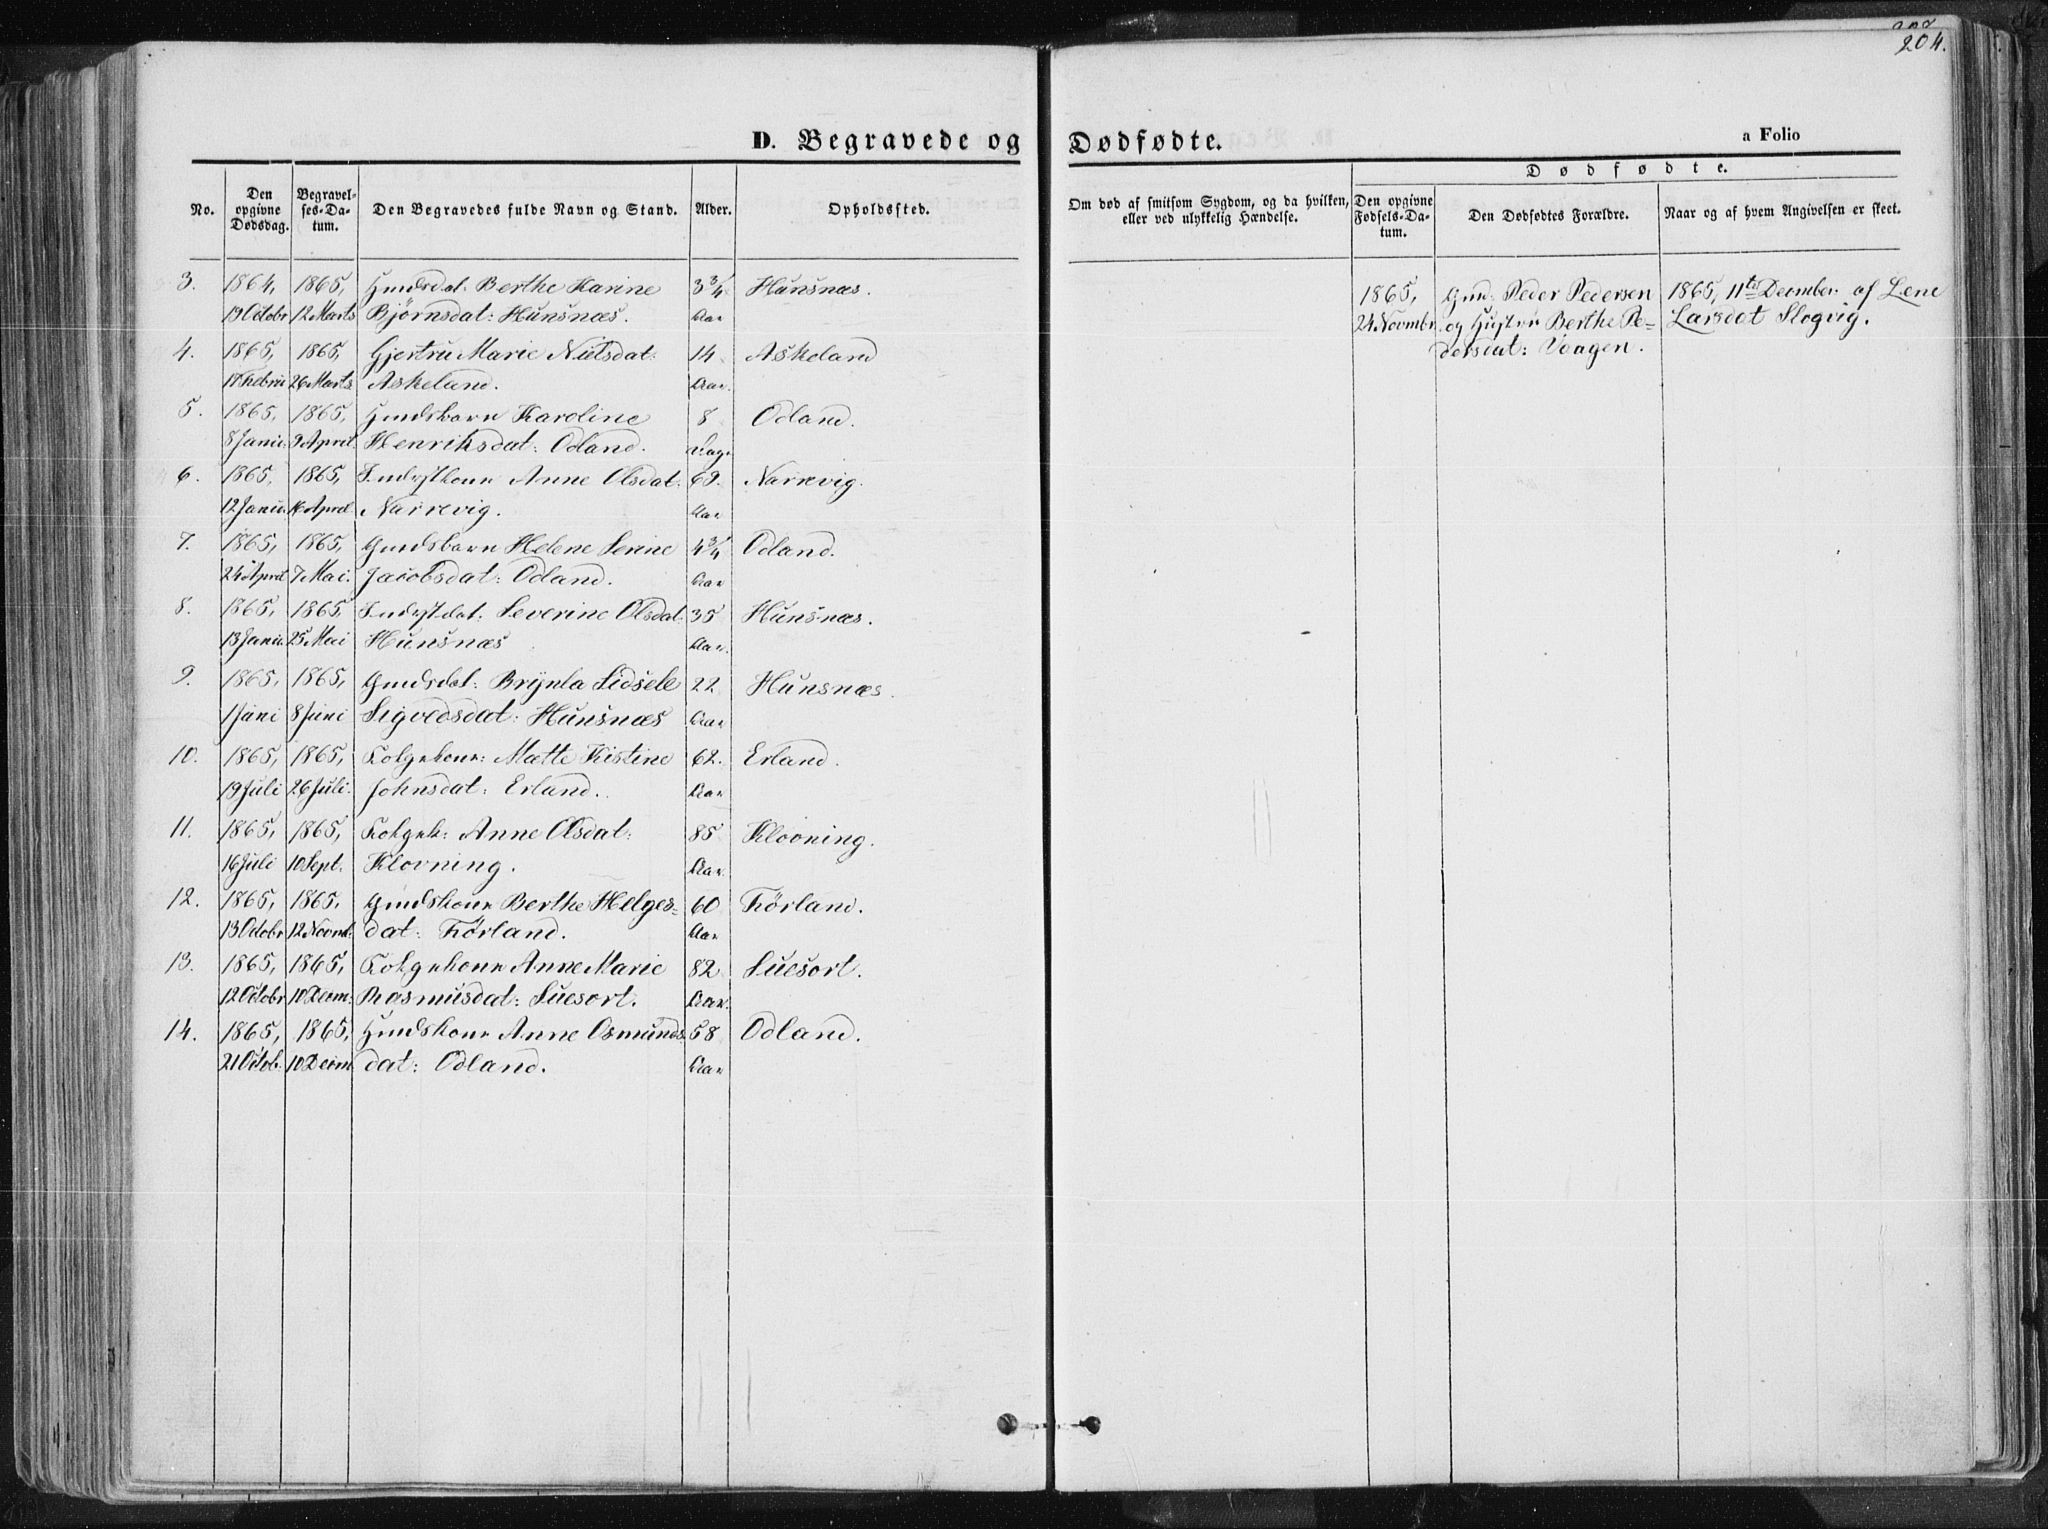 204.
D. Begravede og Dødfødte.
a Folio
No.
Den opgivne Dødsdag.
Begravelses-Datum.
Den Begravedes fulde Navn og Stand.
Alder.
Opholdssted.
Om død af smitsom Sygdom, og da hvilken, eller ved ulykkelig Hændelse.
Dødfødte.
Den opgivne Fødsels-Datum.
Den Dødfødtes Forældre.
Naar og af hvem Angivelsen er skeet.
3. 1864, 1865, Berthe Karine 3 3/4 Hunsnæs.
19 Octobr 12 Marts Bjørnsdat: Hunsnæs. Aar
4. 1865, 1865, Gjertru Marie Nielsdat: 14 Askeland
26 Marts Askeland. Aar.
5. 1865, 1865, Karoline 8 Odland.
8 Janu. 9 April Henriksdat: Odland. Dage
6. 1865, 1865, Anne Olsdat: 69. Narrevig.
12 Janu. 16 April Narrevig. Aar
7. 1865, 1865, Gmdsbarn Helene Serine 4 3/4 Odland.
24 April 7 Mai. Jacobsdat: Odland. Aar
8. 1865, 1865 Severine Olsdat: 35 Hunsnæs.
13 Janu. 25 Mai Hunsnæs Aar.
9. 1865, 1865, Gmdsdat: Brynla Lidsele 22 Hunsnæs.
1 Juni 8 Juni Sigvedsdat: Hunsnæs Aar
10. 1865, 1865, Mætte Kistine 62. Erland.
19 Juli 26 Juli. Johnsdat: Erland. Aar
11. 1865, 1865, Anne Olsdat: 85 Klovning.
16 Juli 10 Sept. Klovning. Aar.
12. 1865, 1865, Gmdskone Berthe Helges- 60 Førland.
13 Octobr 12 Novmb. dat: Førland. Aar
13. 1865, 1865, Anne Marie 82 Suesort.
12 Octobr 10 Decm: Rasmusdat: Suesort. Aar.
14. 1865, 1865, Anne Osmunds- 58 Odland.
21 Octob. 10 Decm dat: Odland. Aar
1865, Gmd: Peder Pedersen 1865, 11te December af Lene
24 Novmbr. og Hustru Berthe Pe- Larsdat Slogvig.
dersdat: Vaagen.